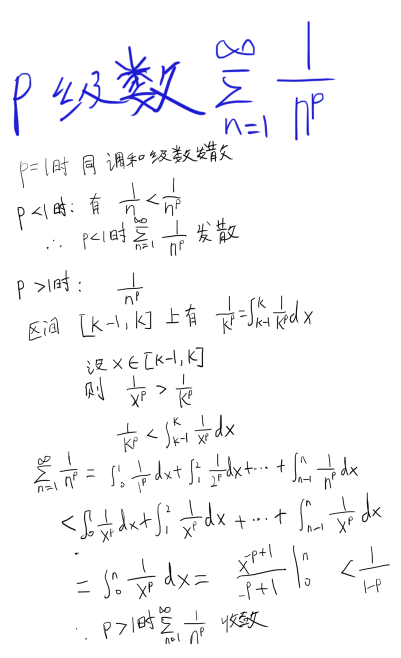 P级数 \sum_{n=1}^{\infty} \frac{1}{n^p}
p=1时 同调和级数发散
P<1时: 有 \frac{1}{n} < \frac{1}{n^p}
∴ P<1时 \sum_{n=1}^{\infty} \frac{1}{n^p} 发散
P>1时: \frac{1}{n^p}
区间 [k-1,k] 上有 \frac{1}{k^p} = \int_{k-1}^{k} \frac{1}{k^p} dx
设 x∈[k-1,k]
则 \frac{1}{x^p} > \frac{1}{k^p}
\frac{1}{k^p} < \int_{k-1}^{k} \frac{1}{x^p} dx
\sum_{n=1}^{\infty} \frac{1}{n^p} = \int_{0}^{1} \frac{1}{1^p} dx + \int_{1}^{2} \frac{1}{2^p} dx + \cdots + \int_{n-1}^{n} \frac{1}{n^p} dx
< \int_{0}^{1} \frac{1}{x^p} dx + \int_{1}^{2} \frac{1}{x^p} dx + \cdots + \int_{n-1}^{n} \frac{1}{x^p} dx
= \int_{0}^{n} \frac{1}{x^p} dx = \frac{x^{-p+1}}{-p+1} |_{0}^{n} < \frac{1}{1-p}
∴ P>1时 \sum_{n=1}^{\infty} \frac{1}{n^p} 收敛